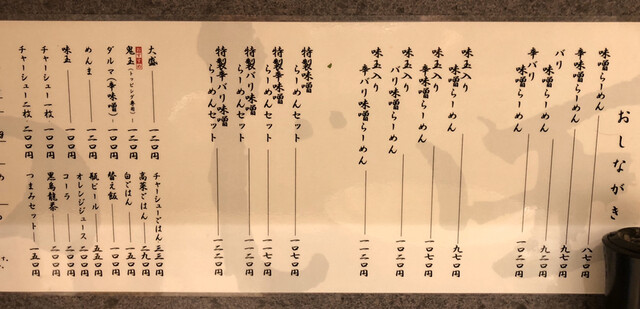 おしながき
味噌らーめん 八七〇円
辛味噌らーめん 九七〇円
バリ味噌らーめん 九二〇円
辛バリ味噌らーめん 一〇二〇円
味玉入り味噌らーめん 九七〇円
味玉入り辛味噌らーめん 一〇七〇円
味玉入りバリ味噌らーめん 一〇二〇円
味玉入り辛バリ味噌らーめん 一一二〇円
特製味噌らーめんセット 一〇七〇円
特製辛味噌らーめんセット 一一七〇円
特製バリ味噌らーめんセット 一一二〇円
特製辛バリ味噌らーめんセット 一二二〇円
大盛 一二〇円
鬼玉(トッピング専用) 一五〇円
ダルマ(辛味噌) 一〇〇円
めんま 二〇〇円
味玉 一〇〇円
チャーシュー一枚 一〇〇円
チャーシュー二枚 二〇〇円
チャーシューごはん 三三〇円
高菜ごはん 二九〇円
白ごはん 一五〇円
替え飯 一〇〇円
瓶ビール 五五〇円
オレンジジュース 二〇〇円
コーラ 二〇〇円
黒烏龍茶 二〇〇円
つまみセット 三五〇円